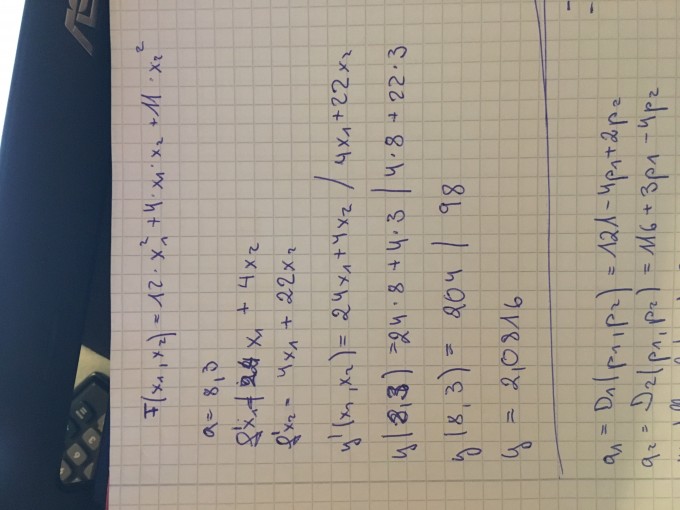 F(x₁,x₂) = 12·x₁² + 4·x₁·x₂ + 11·x₂²
a = 8,3
x₁ + 4x₂
x₂ = 4x₁ + 22x₂
y'(x₁,x₂) = 24x₁+4x₂ / 4x₁+22x₂
y(8,3) = 24·8+4·3 / 4·8+22·3
y(8,3) = 204 / 98
y = 2,0816
q₁ = D₁(p₁,p₂) = 121-4p₁+2p₂
q₂ = D₂(p₁,p₂) = 116+3p₁-4p₂